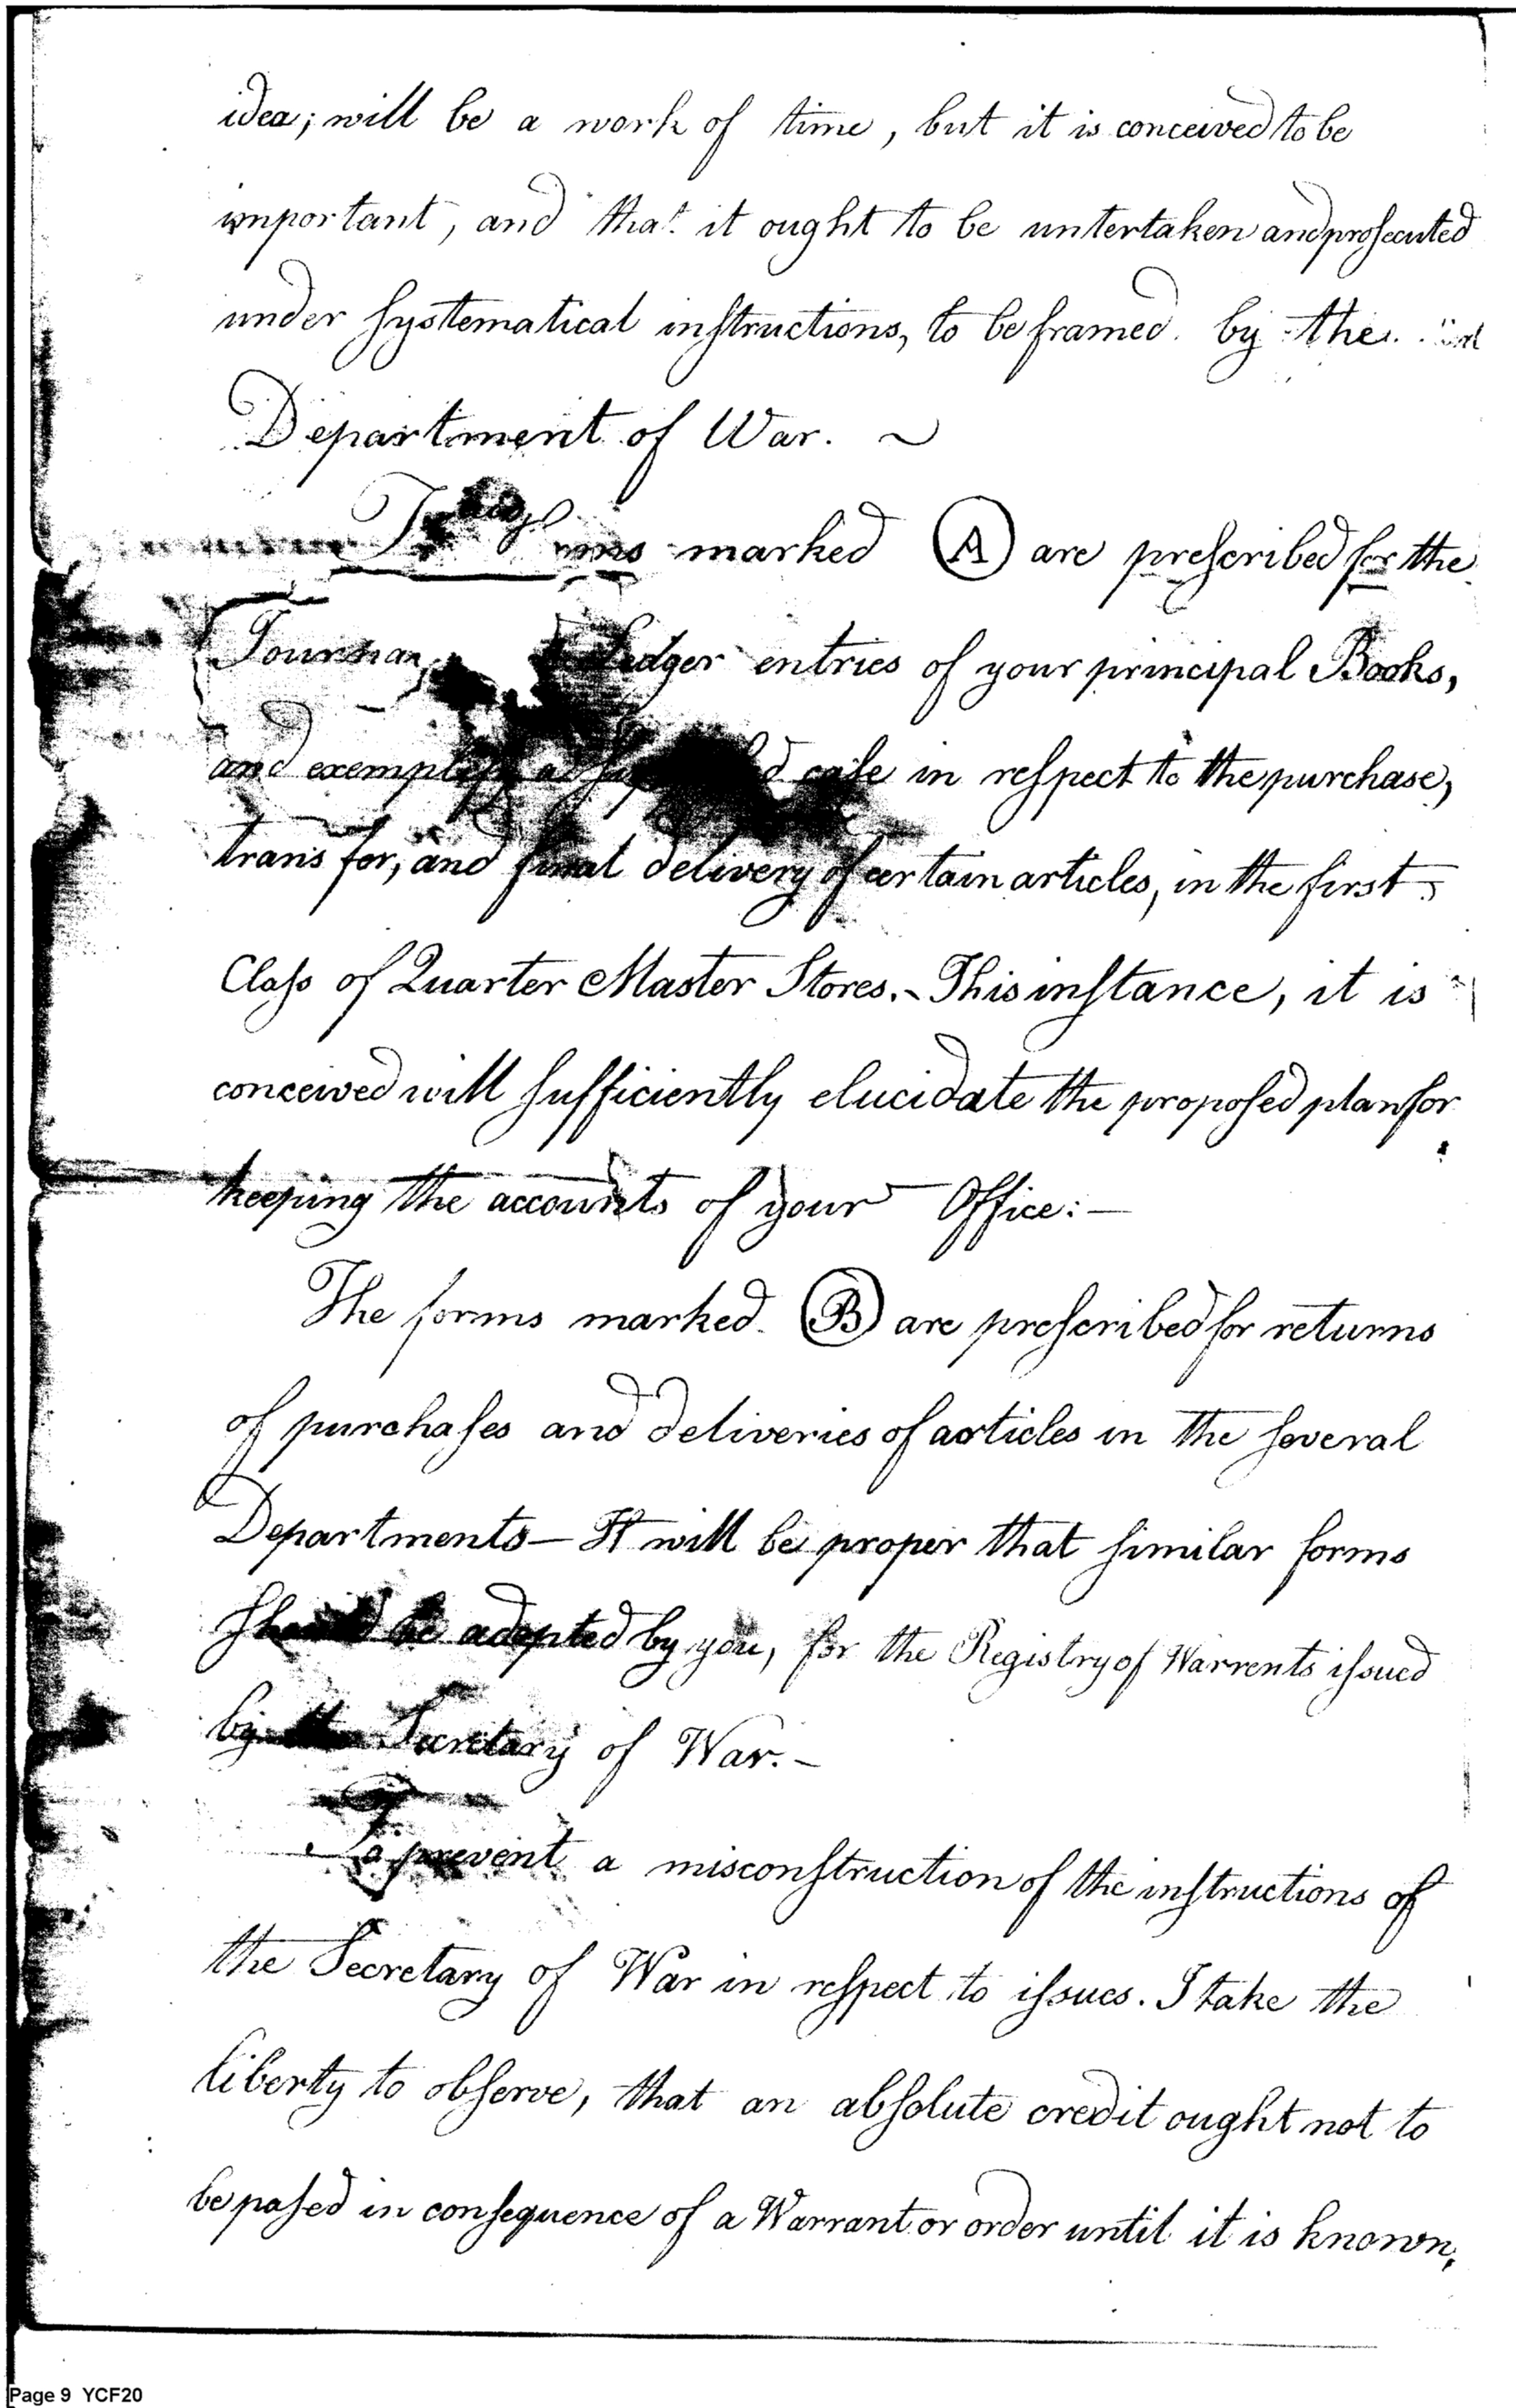 idea; will be a work of time, but it is conceived to be
important, and that it ought to be untertaken and prosecuted
under systematical instructions, to be framed by the
Department of War. ~
marked (A) are prescribed for the
Ledger entries of your principal Books,
and case in respect to the purchase,
transfer, and final delivery of certain articles, in the first
Class of Quarter Master Stores. - This instance, it is
conceived will sufficiently elucidate the proposed plan for
keeping the accounts of your Office: —
The forms marked (B) are prescribed for returns
of purchases and deliveries of articles in the several
Departments — It will be proper that similar forms
Should be adopted by you, for the Registry of Warrents issued
by the Secretary of War. —
To prevent a misconstruction of the instructions of
the Secretary of War in respect to issues. I take the
liberty to observe, that an absolute credit ought not to
be passed in consequence of a Warrant or order until it is known,
Page 9 YCF20